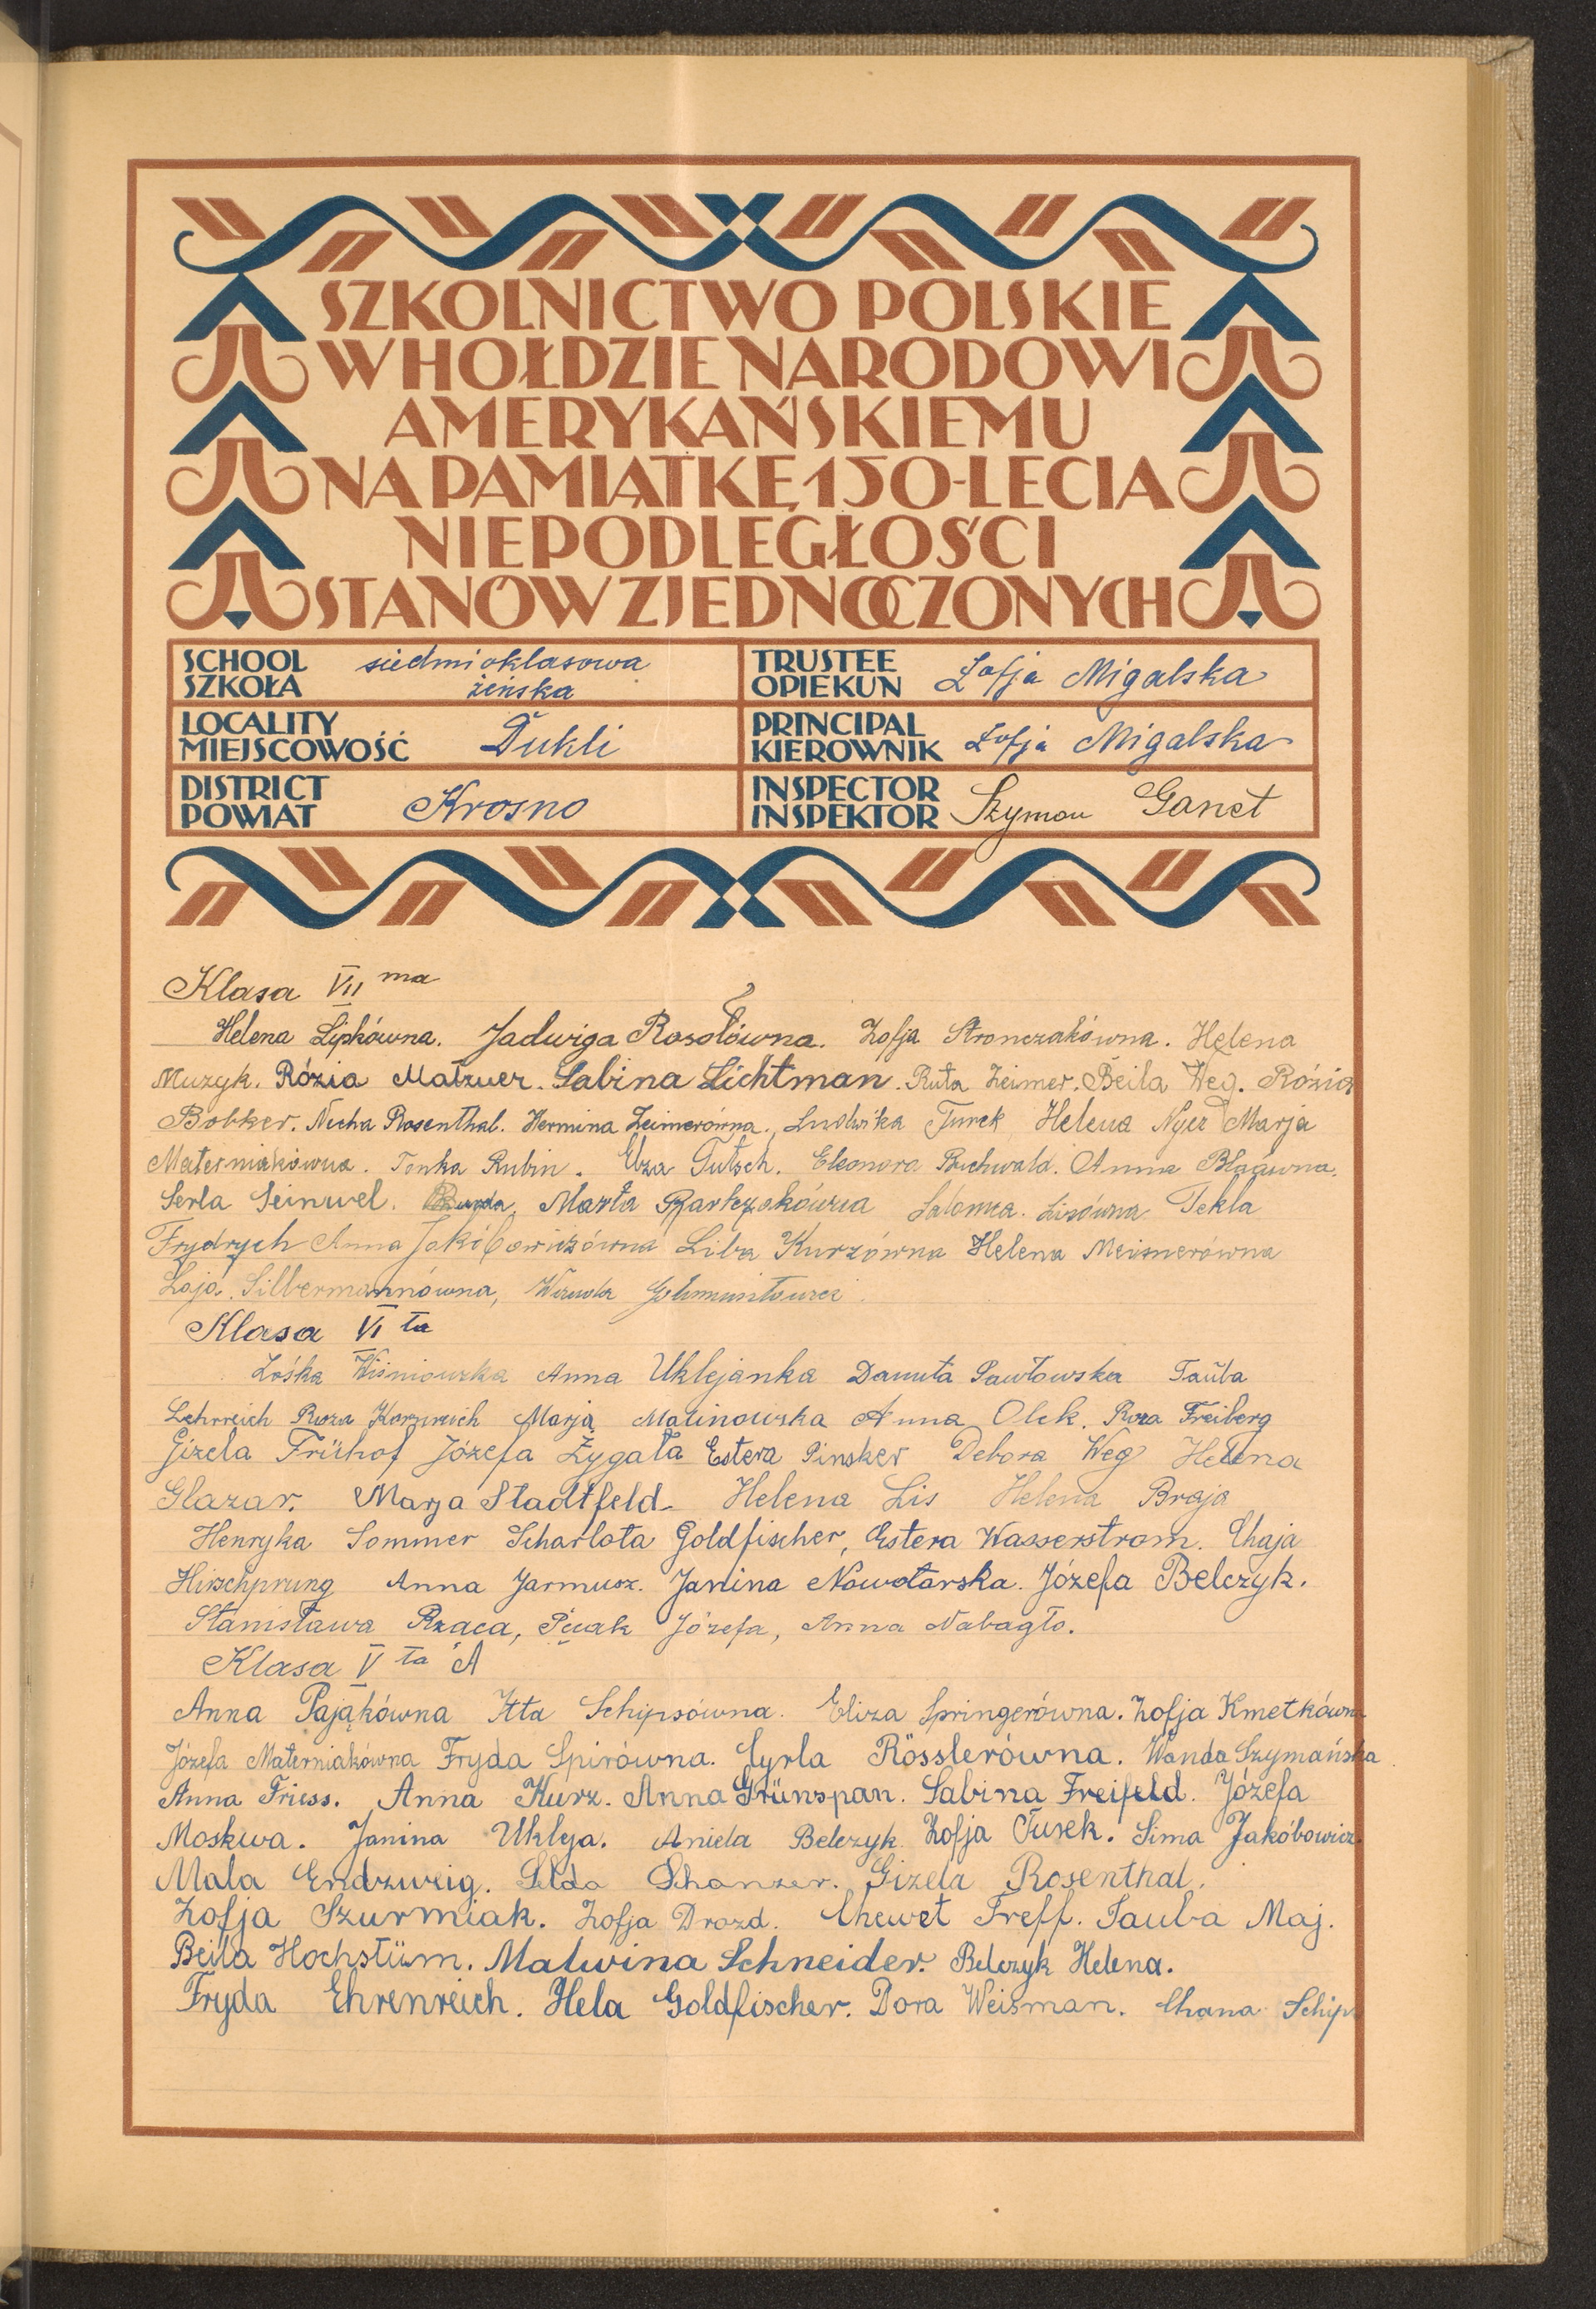 SZKOLNICTWO POLSKIE
W HOŁDZIE NARODOWI
AMERYKAŃSKIEMU
NA PAMIĄTKĘ 150-LECIA
NIEPODLEGŁOŚCI
STANÓW ZJEDNOCZONYCH
SCHOOL SZKOŁA siedmioklasowa żeńska
TRUSTEE OPIEKUN Zofja Migalska
LOCALITY MIEJSCOWOŚĆ Dukli
PRINCIPAL KIEROWNIK Zofja Migalska
DISTRICT POWIAT Krosno
INSPECTOR INSPEKTOR Szymon Ganet
Klasa VII ma
Helena Lipkówna. Jadwiga Rosołówna. Zofja Stronczakówna. Helena
Muzyk. Rózia Matzner. Sabina Lichtman. Ruta Zeimer. Beila Weg. Rózia
Bobker. Necha Rosenthal. Hermina Zeimerówna. Ludwika Turek Helena Nyez Marja
Materniakówna. Tonka Rubin. Elza Tutsch. Eleonora Buchwald. Anna
Serla Seinwel. Marta Bartczakówna Salomea. Lisówna. Tekla
Frydrych Anna Jakóbowiczówna Liba Kurzówna Helena Meisnerówna
Laja. Silbermannówna,
Klasa VI ta
Zośka Wiśniowska Anna Uklejanka Danuta Pawłowska Tauba
Lehrreich Roza Kornreich Marja Malinowska Anna Olek. Roza Freiberg
Gizela Frühof Józefa Żygała Estera Pinsker Debora Weg Helena
Glazar. Marja Stadtfeld. Helena Lis Helena Braja
Henryka Sommer Scharlota Goldfischer, Estera Wasserstrom. Chaja
Hirschprung Anna Jarmusz. Janina Nowotarska. Józefa Belczyk.
Stanisława Rzaca, Józefa, Anna Nabagło.
Klasa V ta A
Anna Pająkówna Itta Schipsówna. Eliza Springerówna. Zofja Kmetkówna
Józefa Materniakówna Fryda Spirówna. Cyrla Rösslerówna. Wanda Szymańska.
Anna Friess. Anna Kurz. Anna Grünspan. Sabina Freifeld. Józefa
Moskwa. Janina Ukleja. Aniela Belczyk. Zofja Turek. Sima Jakóbowicz.
Mala Endzweig. Schanzer. Gizela Rosenthal.
Zofja Szurmiak. Zofja Drozd. Chewet Treff. Tauba Maj.
Beila Hochstüm. Malwina Schneider. Belczyk Helena.
Fryda Ehrenreich. Hela Goldfischer. Dora Weisman. Chana Schips